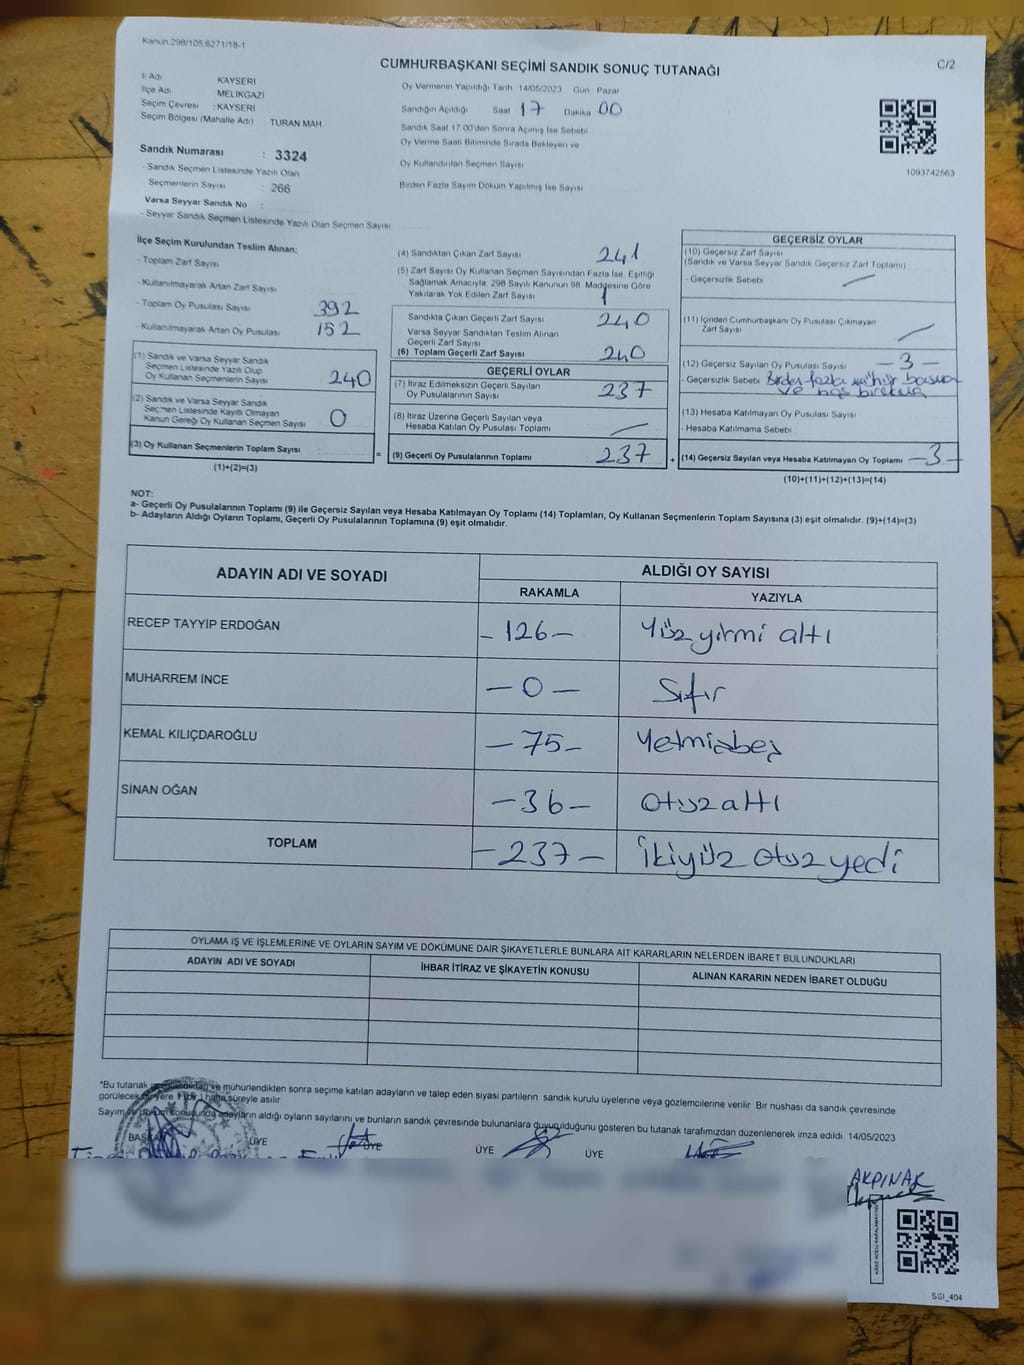 Kanun:298/105,6271/18-1
C/2
CUMHURBAŞKANI SEÇİMİ SANDIK SONUÇ TUTANAĞI
İl Adı KAYSERİ
İlçe Adı MELİKGAZİ
Seçim Çevresi : KAYSERİ
Seçim Bölgesi (Mahalle Adı) TURAN MAH
Sandık Numarası : 3324
- Sandık Seçmen Listesinde Yazılı Olan
Seçmenlerin Sayısı : 266
Varsa Seyyar Sandık No :
- Seyyar Sandık Seçmen Listesinde Yazılı Olan Seçmen Sayısı
Oy Vermenin Yapıldığı Tarih 14/05/2023 Gün Pazar
Sandığın Açıldığı Saat 17 Dakika 00
Sandık Saat 17:00'den Sonra Açımış İse Sebebi
Oy Verme Saati Bitiminde Sırada Bekleyen ve
Oy Kullandırılan Seçmen Sayısı
Birden Fazla Sayım Döküm Yapılmış İse Sayısı
1093742563
İlçe Seçim Kurulundan Teslim Alınan;
- Toplam Zarf Sayısı
- Kullanılmayarak Artan Zarf Sayısı
- Toplam Oy Pusulası Sayısı 392
- Kullanılmayarak Artan Oy Pusulası 152
(1) Sandık ve Varsa Seyyar Sandık
Seçmen Listesinde Yazılı Olup
Oy Kullanan Seçmenlerin Sayısı 240
(2) Sandık ve Varsa Seyyar Sandık
Seçmen Listesinde Kayıtlı Olmayan
Kanun Gereği Oy Kullanan Seçmen Sayısı 0
(3) Oy Kullanan Seçmenlerin Toplam Sayısı
(1)+(2)=(3)
=
(4) Sandıktan Çıkan Zarf Sayısı 241
(5) Zarf Sayısı Oy Kullanan Seçmen Sayısından Fazla İse, Eşitliği
Sağlamak Amacıyla, 298 Sayılı Kanunun 98. Maddesine Göre
Yakılarak Yok Edilen Zarf Sayısı 1
Sandıkta Çıkan Geçerli Zarf Sayısı 240
Varsa Seyyar Sandıktan Teslim Alınan
Geçerli Zarf Sayısı
(6) Toplam Geçerli Zarf Sayısı 240
GEÇERLİ OYLAR
(7) İtiraz Edilmeksizin Geçerli Sayılan
Oy Pusulalarının Sayısı 237
(8) İtiraz Üzerine Geçerli Sayılan veya
Hesaba Katılan Oy Pusulası Toplamı —
(9) Geçerli Oy Pusulalarının Toplamı 237
+
GEÇERSİZ OYLAR
(10) Geçersiz Zarf Sayısı
(Sandık ve Varsa Seyyar Sandık Geçersiz Zarf Toplamı)
- Geçersizlik Sebebi —
(11) İçinden Cumhurbaşkanı Oy Pusulası Çıkmayan
Zarf Sayısı —
(12) Geçersiz Sayılan Oy Pusulası Sayısı — 3 —
- Geçersizlik Sebebi Birden fazla mühür basma
ve boş bırakma
(13) Hesaba Katılmayan Oy Pusulası Sayısı
- Hesaba Katılmama Sebebi
(14) Geçersiz Sayılan veya Hesaba Katılmayan Oy Toplamı — 3 —
(10)+(11)+(12)+(13)=(14)
NOT:
a- Geçerli Oy Pusulalarının Toplamı (9) ile Geçersiz Sayılan veya Hesaba Katılmayan Oy Toplamı (14) Toplamları, Oy Kullanan Seçmenlerin Toplam Sayısına (3) eşit olmalıdır. (9)+(14)=(3)
b- Adayların Aldığı Oyların Toplamı, Geçerli Oy Pusulalarının Toplamına (9) eşit olmalıdır.
ADAYIN ADI VE SOYADI ALDIĞI OY SAYISI
RAKAMLA YAZIYLA
RECEP TAYYİP ERDOĞAN – 126 – Yüz yirmi altı
MUHARREM İNCE – 0 – Sıfır
KEMAL KILIÇDAROĞLU – 75 – Yetmişbeş
SİNAN OĞAN – 36 – Otuzaltı
TOPLAM – 237 – İkiyüz otuz yedi
OYLAMA İŞ VE İŞLEMLERİNE VE OYLARIN SAYIM VE DÖKÜMÜNE DAİR ŞİKAYETLERLE BUNLARA AİT KARARLARIN NELERDEN İBARET BULUNDUKLARI
ADAYIN ADI VE SOYADI İHBAR İTİRAZ VE ŞİKAYETİN KONUSU ALINAN KARARIN NEDEN İBARET OLDUĞU
*Bu tutanak ve mühürlendikten sonra seçime katılan adayların ve talep eden siyasi partilerin sandık kurulu üyelerine veya gözlemcilerine verilir Bir nushası da sandık çevresinde
görülecek yere 1 (bir) hafta süreyle asılır
Sayım ve döküm sonucunda adayların aldığı oyların sayılarını ve bunların sandık çevresinde bulunanlara duyurulduğunu gösteren bu tutanak tarafımızdan düzenlenerek imza edildi. 14/05/2023
BAŞKAN ÜYE ÜYE ÜYE ÜYE
AKPINAR
SSI_404